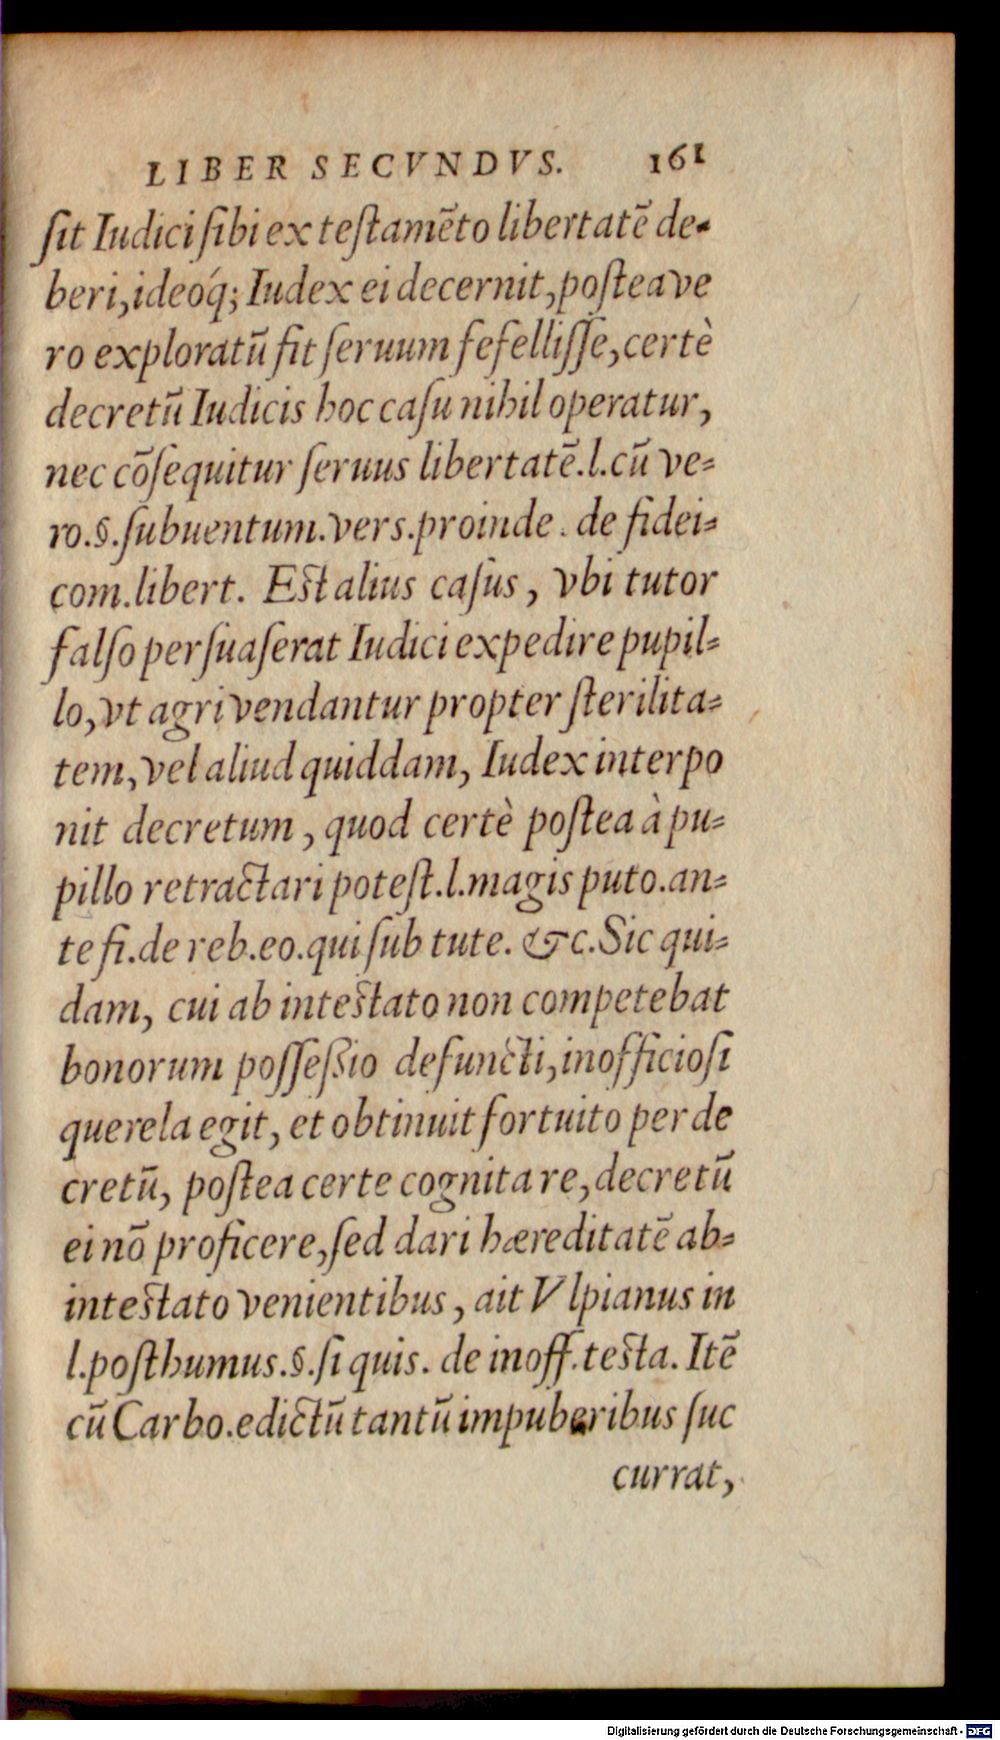 LIBER SECVNDVS. 161
ſit Iudici ſibi ex teſtamẽto libertatẽ de-
beri, ideoq́; Iudex ei decernit, poſtea ve
ro exploratũ fit ſeruum fefelliſſe, certè
decretũ Iudicis hoc caſu nihil operatur,
nec cõſequitur ſeruus libertatẽ. l. cũ ve-
ro. §. ſubuentum. vers. proinde. de fidei-
com. libert. Eſt alius caſus, vbi tutor
falſo perſuaſerat Iudici expedire pupil-
lo, vt agri vendantur propter ſterilita-
tem, vel aliud quiddam, Iudex interpo
nit decretum, quod certè poſtea à pu-
pillo retractari poteſt. l. magis puto. an-
te fi. de reb. eo. qui ſub tute. &c. Sic qui-
dam, cui ab inteſtato non competebat
bonorum poſſeßio defuncti, inofficioſi
querela egit, et obtinuit fortuito per de
cretũ, poſtea certe cognita re, decretũ
ei nõ proficere, ſed dari hæreditatẽ ab-
inteſtato venientibus, ait Vlpianus in
l. poſthumus. §. ſi quis. de inoff. teſta. Itẽ
cũ Carbo. edictũ tantũ impuberibus ſuc
currat,
Digitalisierung gefördert durch die Deutsche Forschungsgemeinschaft - DFG